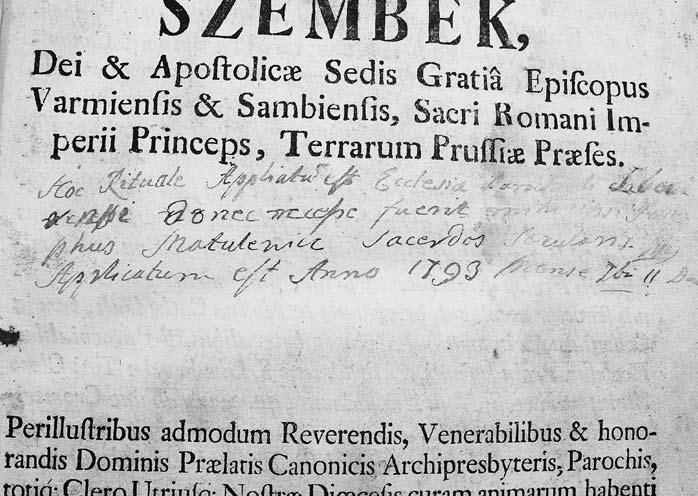 SZEMBEK,
Dei & Apoſtolicæ Sedis Gratiâ Epiſcopus
Varmienſis & Sambienſis, Sacri Romani Im-
perii Princeps, Terrarum Pruſſiæ Præſes.
Hoc Rituale Applicatū est Ecclesia
donec fuerit
phus Matulewicz Sacerdos
Applicatum est Anno 1793 Mense 11
Perilluſtribus admodum Reverendis, Venerabilibus & hono-
randis Dominis Prælatis Canonicis Archipresbyteris, Parochis,
totiq́; Clero Utriuſq́; Noſtræ Diœceſis curam animarum habenti